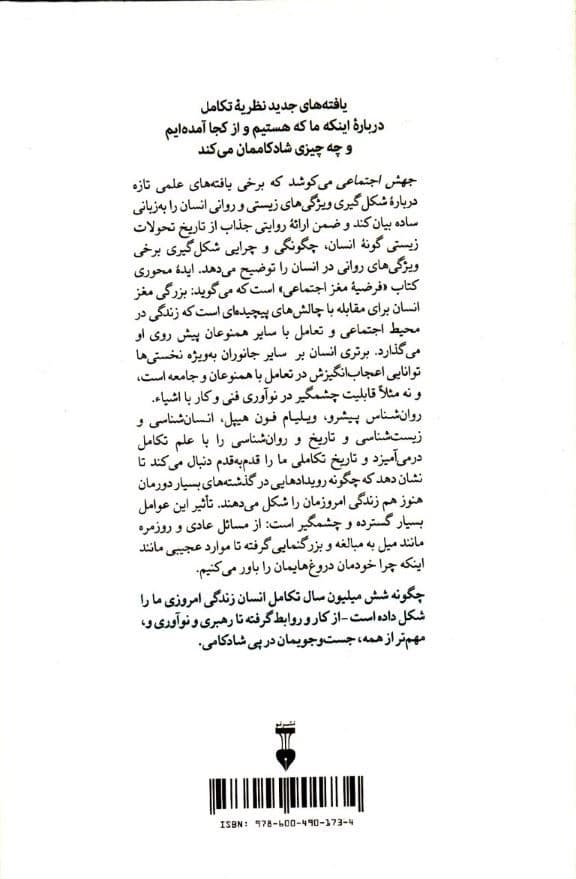 یافته‌های جدید نظریهٔ تکامل
دربارهٔ اینکه ما که هستیم و از کجا آمده‌ایم
و چه چیزی شادکاممان می‌کند
جهش اجتماعی می‌کوشد که برخی یافته‌های علمی تازه
دربارهٔ شکل‌گیری ویژگی‌های زیستی و روانی انسان را به‌زبانی
ساده بیان کند و ضمن ارائهٔ روایتی جذاب از تاریخ تحولات
زیستی گونهٔ انسان، چگونگی و چرایی شکل‌گیری برخی
ویژگی‌های روانی در انسان را توضیح می‌دهد. ایدهٔ محوری
کتاب «فرضیهٔ مغز اجتماعی» است که می‌گوید: بزرگی مغز
انسان برای مقابله با چالش‌های پیچیده‌ای است که زندگی در
محیط اجتماعی و تعامل با سایر همنوعان پیش روی او
می‌گذارد. برتری انسان بر سایر جانوران به‌ویژه نخستی‌ها
توانایی اعجاب‌انگیزش در تعامل با همنوعان و جامعه است،
و نه مثلاً قابلیت چشمگیر در نوآوری فنی و کار با اشیاء.
روان‌شناس پیشرو، ویلیام فون هیپل، انسان‌شناسی و
زیست‌شناسی و تاریخ و روان‌شناسی را با علم تکامل
درمی‌آمیزد و تاریخ تکاملی ما را قدم‌به‌قدم دنبال می‌کند تا
نشان دهد که چگونه رویدادهایی در گذشته‌های بسیار دورمان
هنوز هم زندگی امروزمان را شکل می‌دهند. تأثیر این عوامل
بسیار گسترده و چشمگیر است: از مسائل عادی و روزمره
مانند میل به مبالغه و بزرگنمایی گرفته تا موارد عجیبی مانند
اینکه چرا خودمان دروغ‌هایمان را باور می‌کنیم.
چگونه شش میلیون سال تکامل انسان زندگی امروزی ما را
شکل داده است –از کار و روابط گرفته تا رهبری و نوآوری و،
مهم‌تر از همه، جست‌وجویمان در پی شادکامی.
نشرنو
ISBN: 978-600-490-173-4